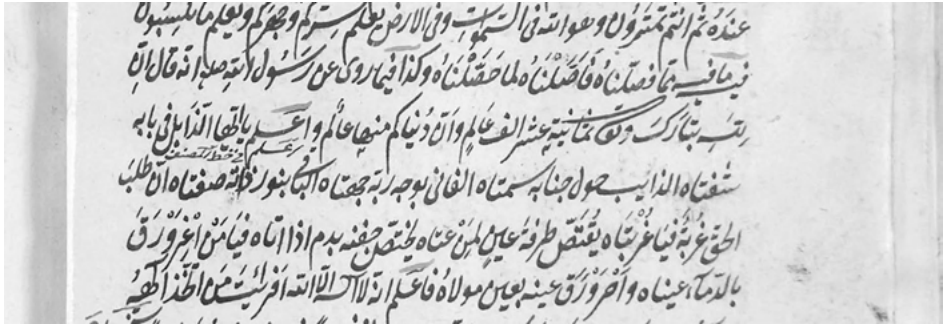 عنده ثم انتم تمترون وهو الله فى السموات وفى الارض يعلم سركم وجهركم ويعلم ما تكسبون
فيه ما فيه مما فصلناه فاصلناه لما حصلناه وكذا فيما روى عن رسول الله انه قال ان
لله تبارك وتعالى ثمانية عشر الف عالم وان دنياكم منها عالم واعلم يا ايها الذابل فى بابه
شفتاه الذايب حول جنابه سمتاه الفانى بوجه ربه جهتاه الباقى بنور ذاته صفتاه ان طلب
الحق غربة فيا غربتاه يقتص طرفة عين لمن عناه يختص جفنه بدم اذا اتاه فيا من اغرورق
بالدماء عيناه واخرورق عينه بعين مولاه فاعلم انه لا اله الا الله افرايت من اتخذ الهه